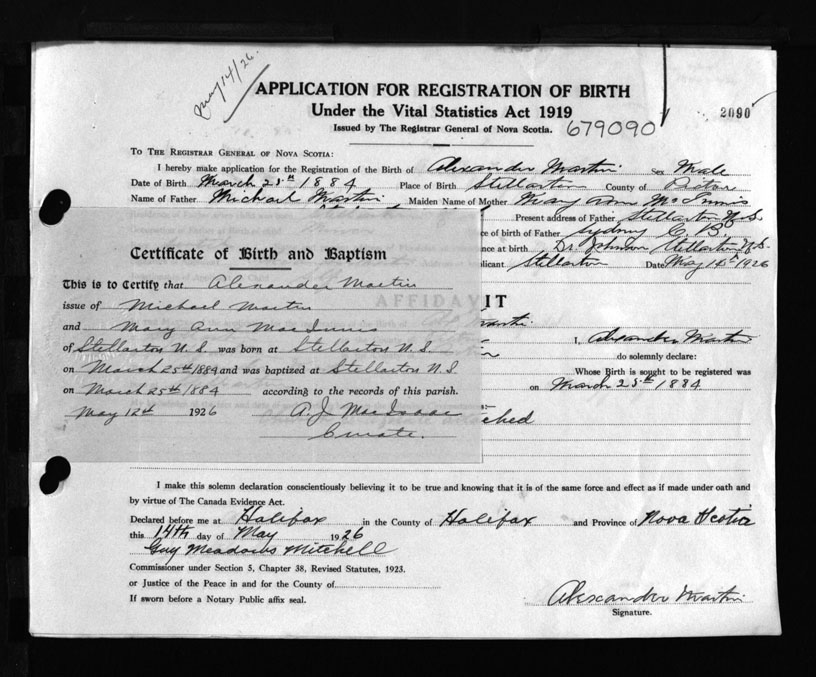 May 14/26.
APPLICATION FOR REGISTRATION OF BIRTH
Under the Vital Statistics Act 1919
2090
Issued by The Registrar General of Nova Scotia.
679090
To The Registrar General of Nova Scotia:
I hereby make application for the Registration of the Birth of Alexander Martin Sex Male
Date of Birth March 25th 1884 Place of Birth Stellarton County of Pictou
Name of Father Michael Martin Maiden Name of Mother Mary Ann McInnis
Present address of Father Stellarton N.S.
ce of birth of Father Sydney C. B.
nce at birth Dr. Johnson Stellarton N.S.
plicant Stellarton Date May 14th 1926
Certificate of Birth and Baptism
This is to Certify that Alexander Martin
issue of Michael Martin
and Mary Ann MacInnis
of Stellarton N.S. was born at Stellarton N.S.
on March 25th 1884 and was baptized at Stellarton N.S.
on March 25th 1884 according to the records of this parish.
May 12th 1926 A. J. MacIsaac
Curate.
AFFIDAVIT
I, Alexander Martin
do solemnly declare:
Whose Birth is sought to be registered was
on March 25th 1884
attached
I make this solemn declaration conscientiously believing it to be true and knowing that it is of the same force and effect as if made under oath and
by virtue of The Canada Evidence Act.
Declared before me at Halifax in the County of Halifax and Province of Nova Scotia
this 14th day of May 1926
Guy Meadows Mitchell
Commissioner under Section 5, Chapter 38, Revised Statutes, 1923.
or Justice of the Peace in and for the County of
If sworn before a Notary Public affix seal.
Alexander Martin
Signature.